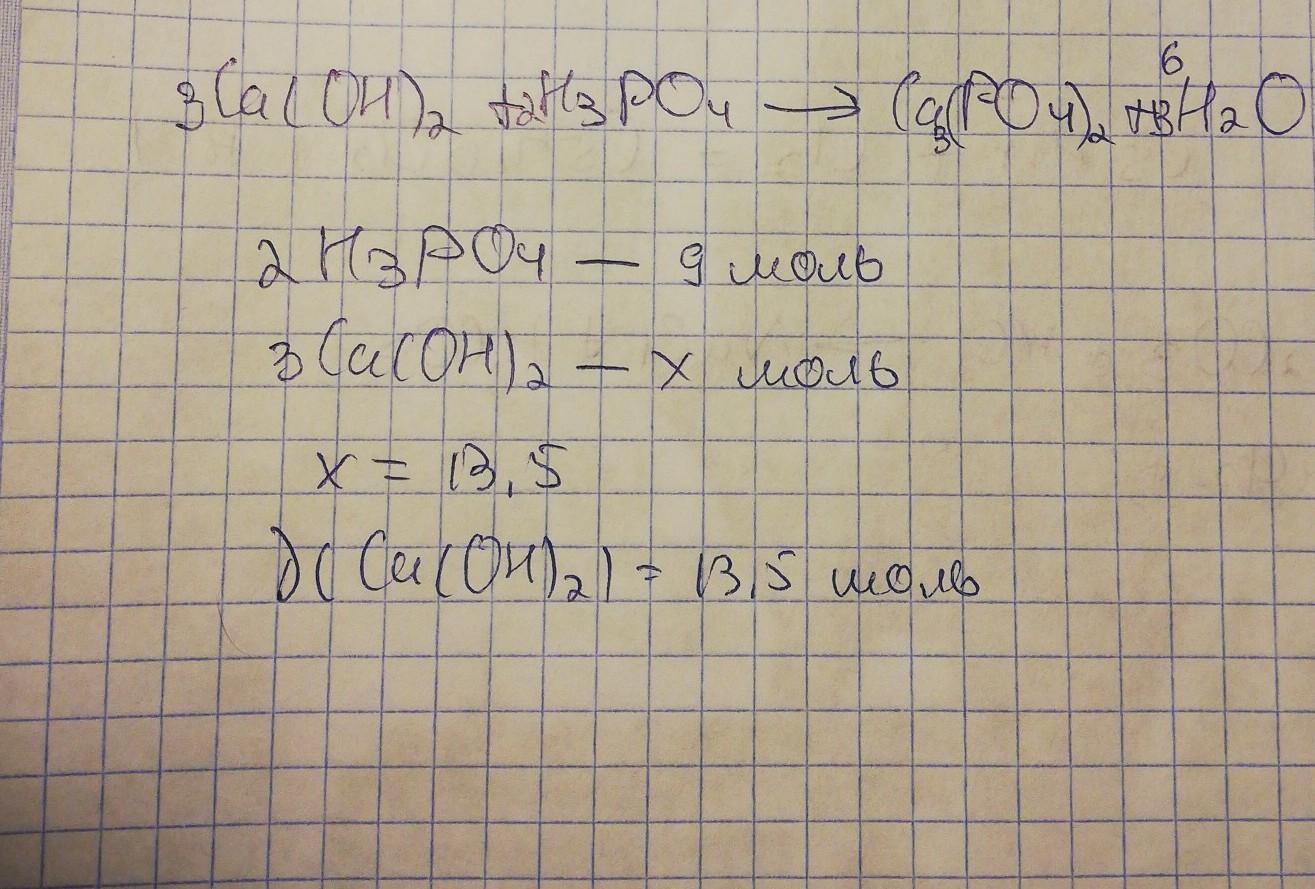 3Ca(OH)2 +2H3PO4 → Ca3(PO4)2 +6H2O
2H3PO4 — 9 моль
3Ca(OH)2 — x моль
x = 13,5
ν(Ca(OH)2) = 13,5 моль